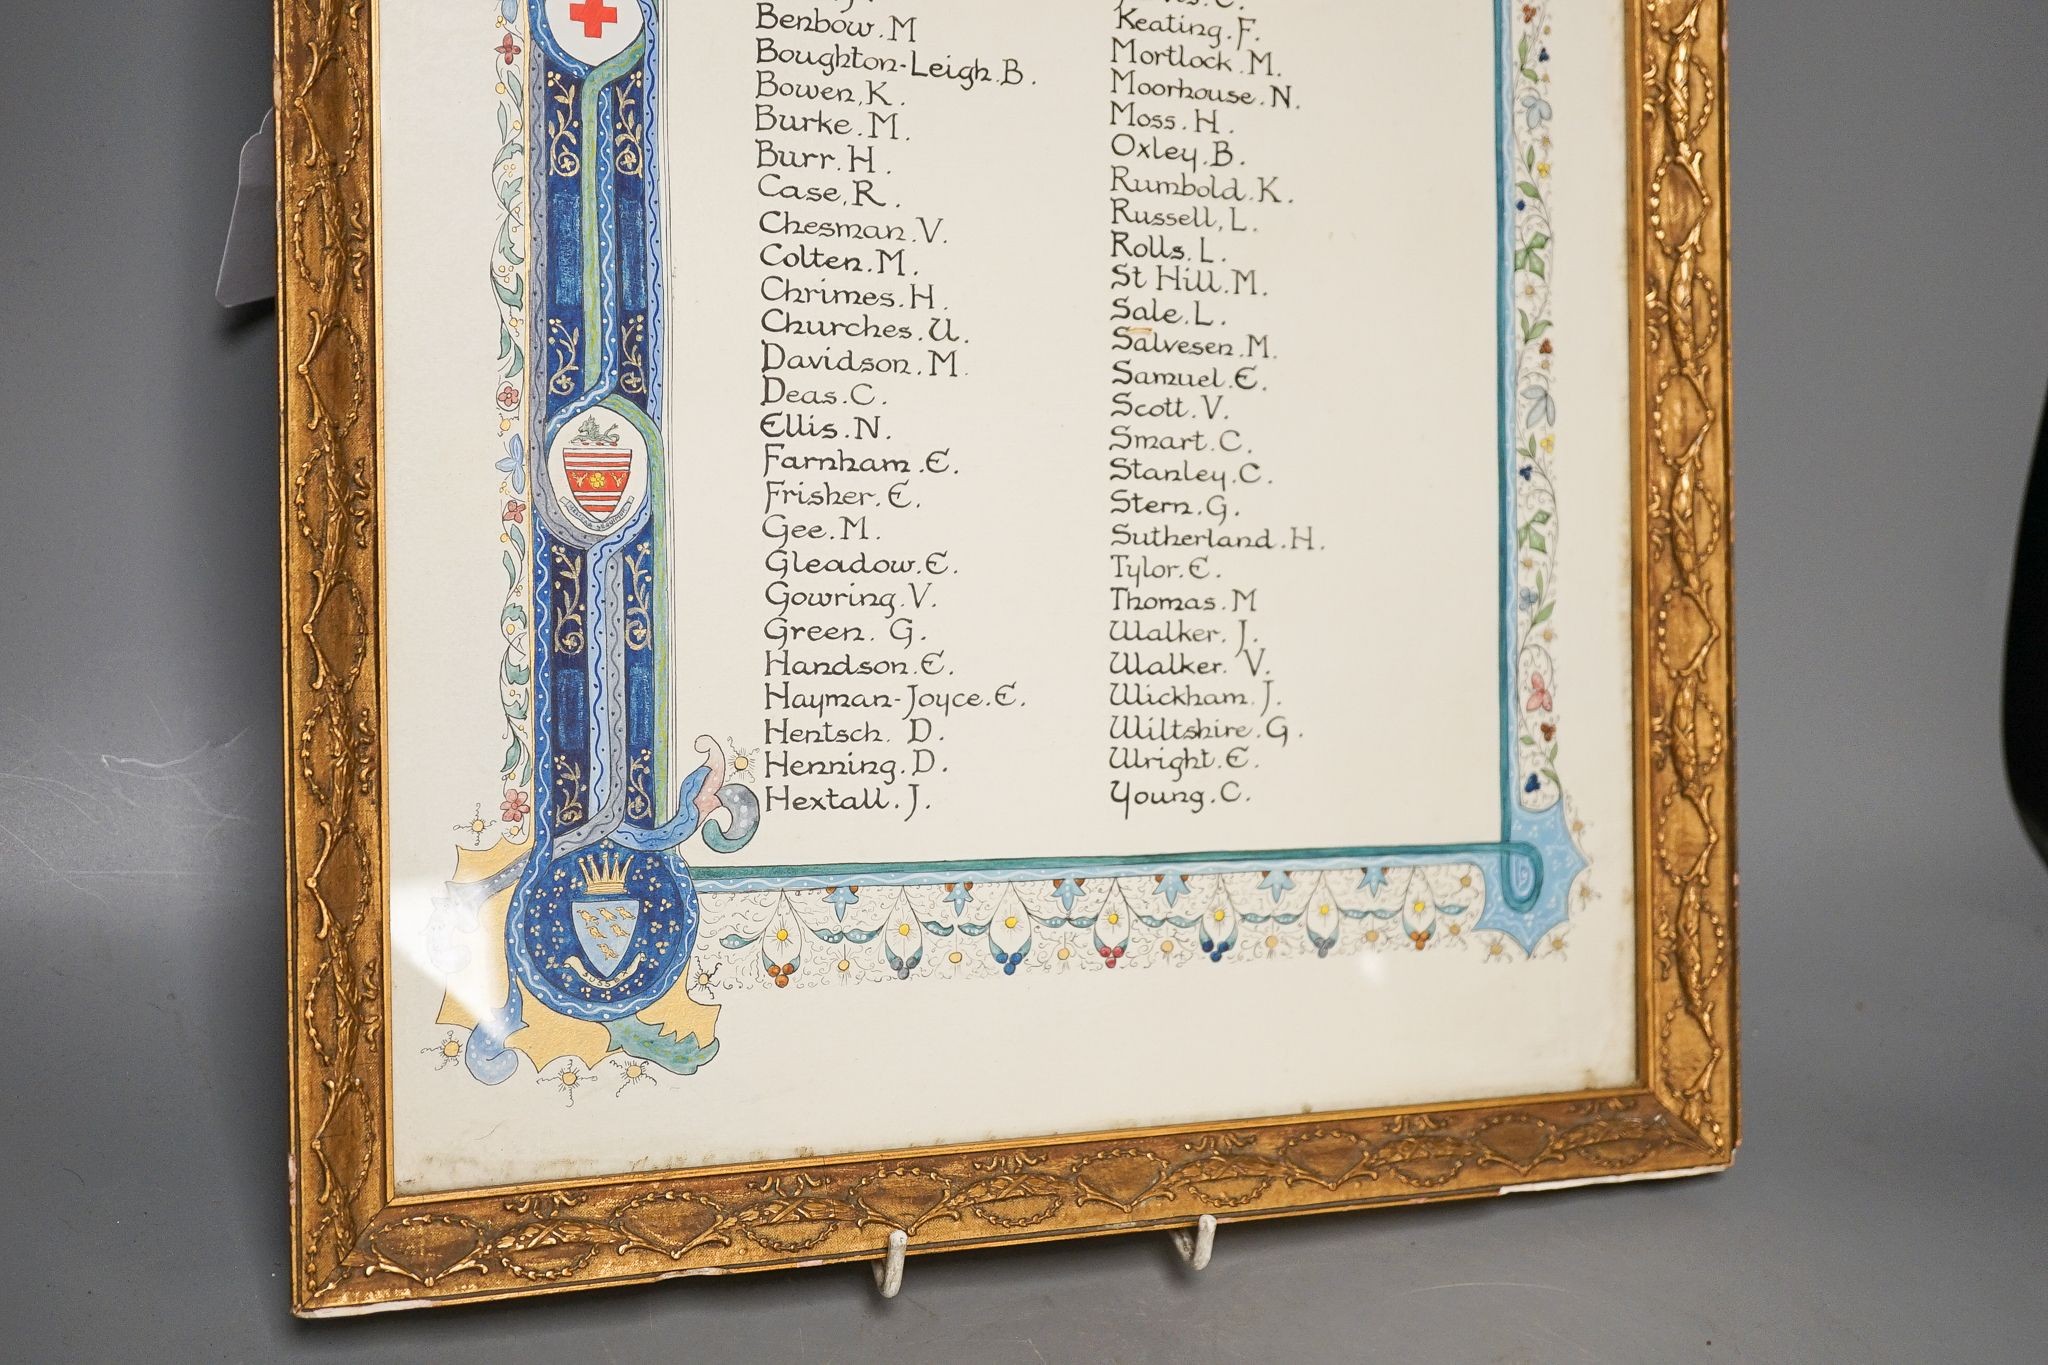 Benbow. M
Boughton-Leigh. B.
Bowen, K.
Burke. M.
Burr. H.
Case, R.
Chesman. V.
Colten. M.
Chrimes. H.
Churches. U.
Davidson. M.
Deas. C.
Ellis. N.
Farnham. E.
Frisher. E.
Gee. M.
Gleadow. E.
Gowring. V.
Green. G.
Handson. E.
Hayman-Joyce. E.
Hentsch. D.
Henning. D.
Hextall. J.
Keating. F.
Mortlock. M.
Moorhouse. N.
Moss. H.
Oxley. B.
Rumbold. K.
Russell, L.
Rolls. L.
St Hill. M.
Sale. L.
Salvesen. M.
Samuel. E.
Scott. V.
Smart. C.
Stanley. C.
Stern. G.
Sutherland. H.
Tylor. E.
Thomas. M
Walker. J.
Walker. V.
Wickham. J.
Wiltshire. G.
Wright. E.
Young. C.